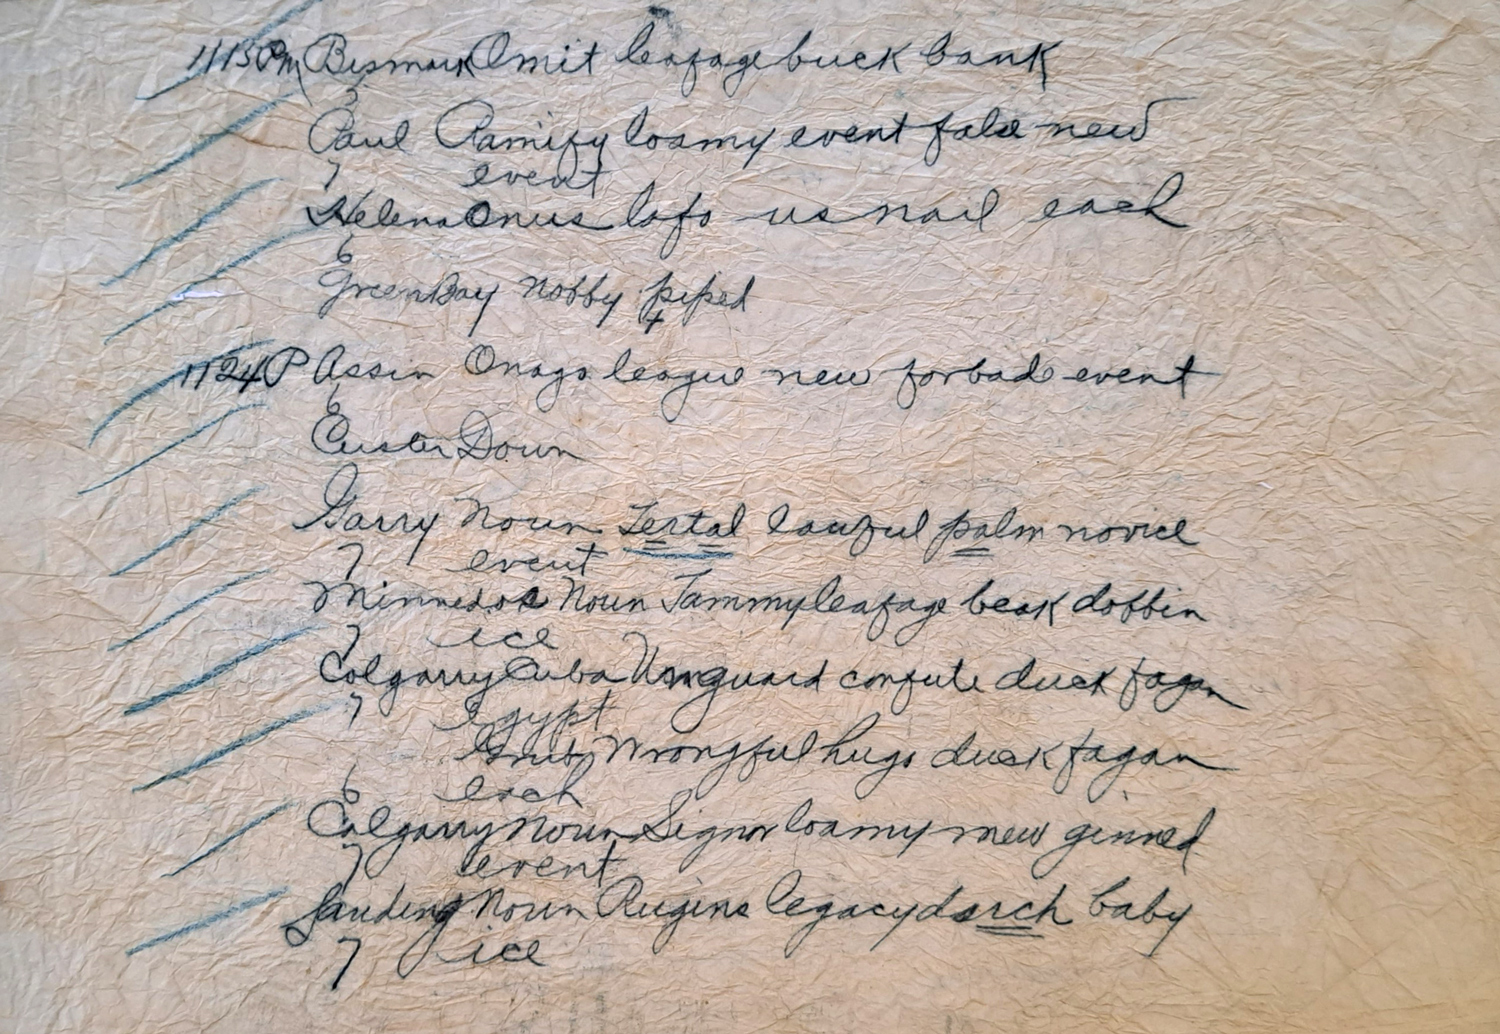 1113PM Bismark Omit leafage buck bank
3
Paul Ramify loamy event false new
7 event
Helena Onus lofo us nail each
6
GreenBay nobby piped
4
1124P Assin Onago league new forbade event
6
Custer Down
Garry noun Tertal lawful palm novice
7 event
Minnedos noun Jammy leafage beak dobbin
7 ice
Calgarry Cuba Unguard confute duck fagan
7 Egypt
Grub wrongful hugs duck fagan
6 each
Calgarry noun Signor loamy mew ginned
7 event
Landing noun Rugins legacy duch baby
7 ice